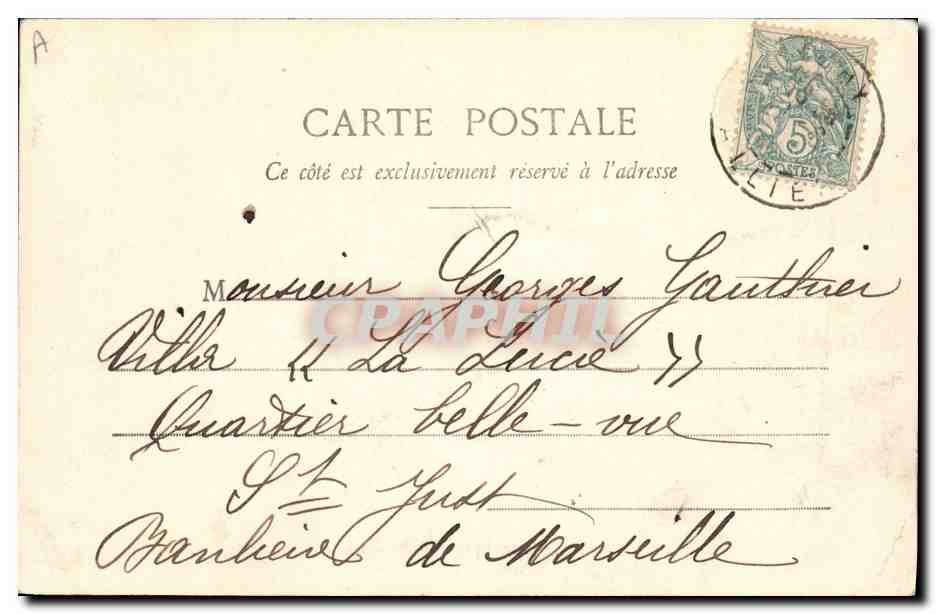 A
CARTE POSTALE
Ce côté est exclusivement réservé à l'adresse
Monsieur Georges Gauthier
CPAPHIL
Villa « La Lucie »
Quartier belle-vue
St Just
Banlieue de Marseille
5c
POSTES
ALLIER